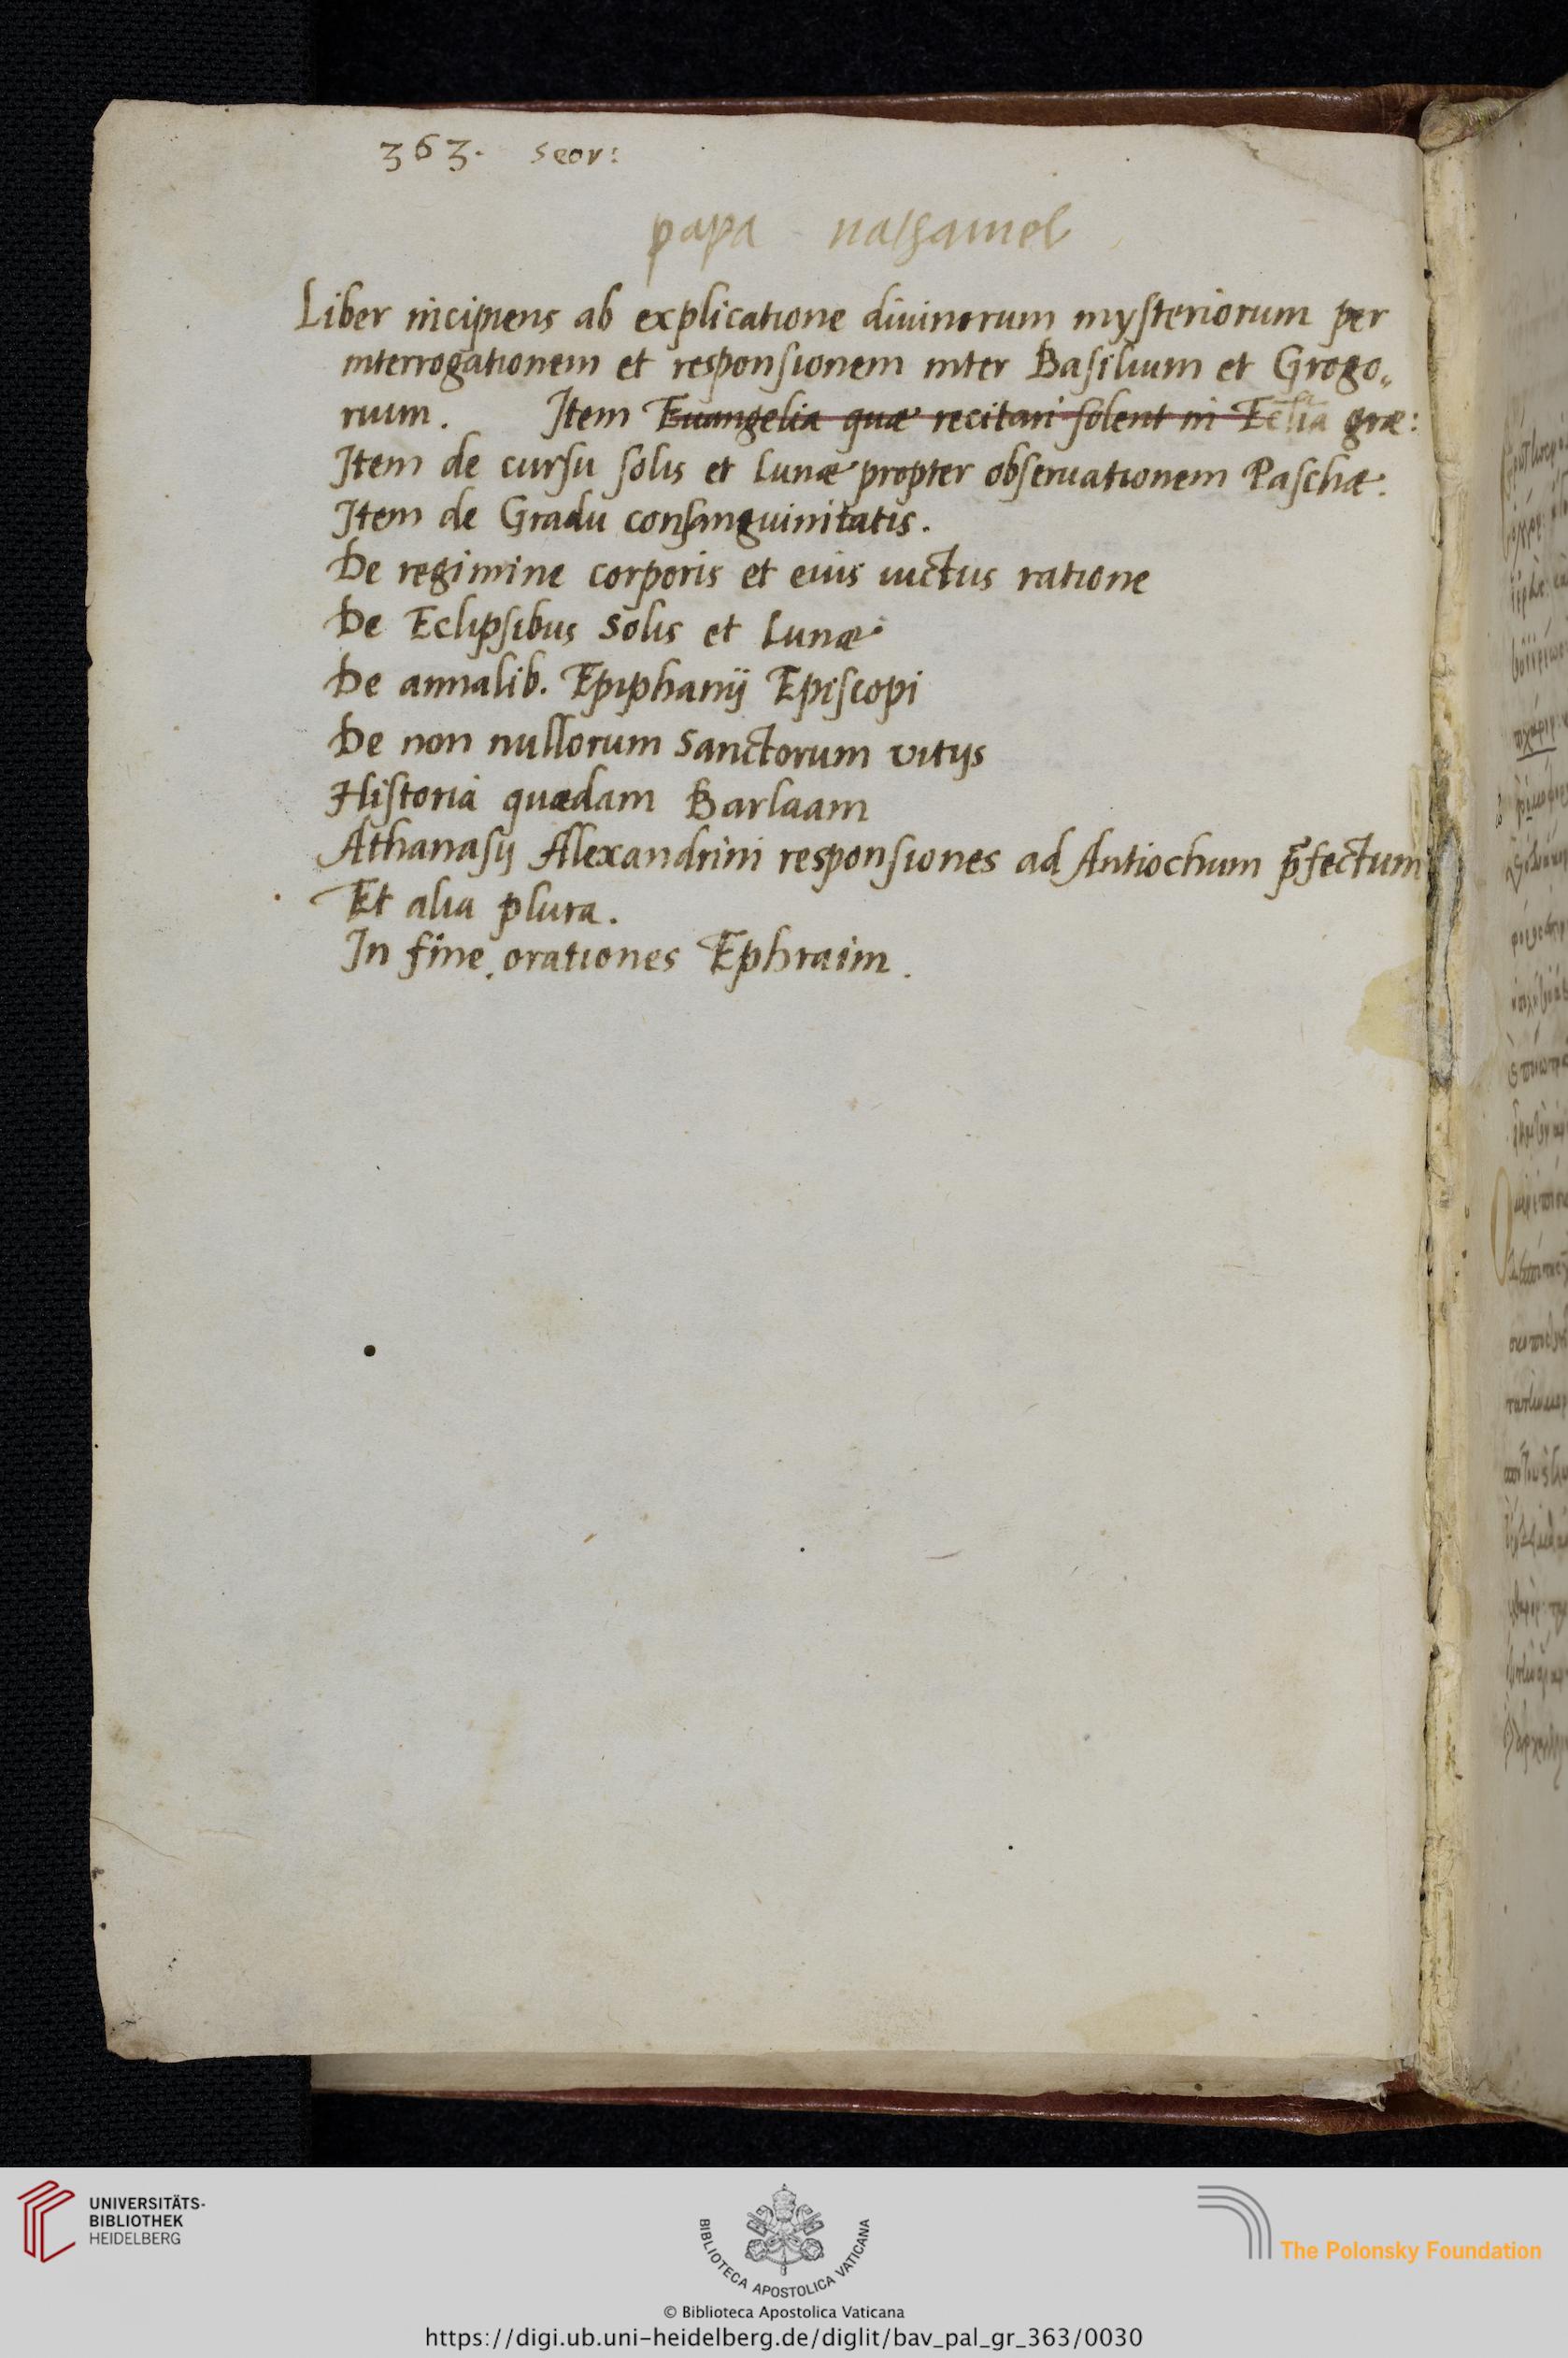 363. scor:
papa nathanael
Liber incipiens ab explicatione diuinorum mysteriorum per
interrogationem et responsionem inter Basilium et Grogo„
rium. Item Euangelia quae recitari solent in Eclia grae:
Item de cursu solis et Lunae propter obseruationem Paschae.
Item de Gradu consanguinitatis.
De regimine corporis et eius uictus ratione
De Eclipsibus Solis et Lunae
De annalib. Epiphanij Episcopi
De non nullorum Sanctorum vitijs
Historia quaedam Barlaam
Athanasij Alexandrini responsiones ad Antiochum p̄fectum
Et alia plura.
In fine, orationes Ephraim.
UNIVERSITÄTS-
BIBLIOTHEK
HEIDELBERG
BIBLIOTECA APOSTOLICA VATICANA
The Polonsky Foundation
© Biblioteca Apostolica Vaticana
https://digi.ub.uni-heidelberg.de/diglit/bav_pal_gr_363/0030